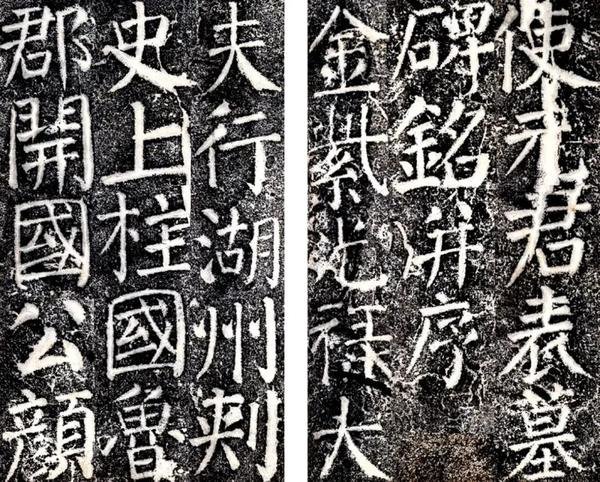 使元君表墓
碑銘并序
金紫光祿大
夫行湖州刺
史上柱國魯
郡開國公顏